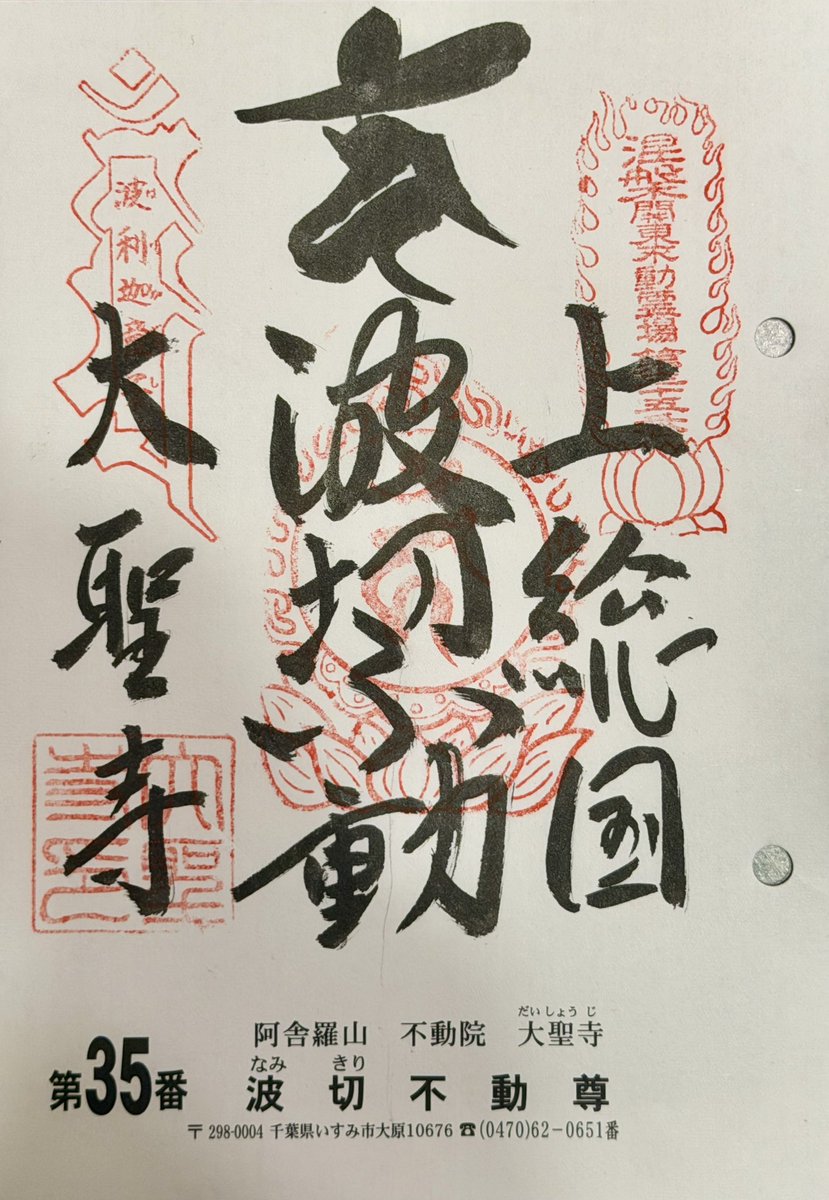 上総国
波切不動
大聖寺
涅槃 関東不動霊場 第三十五
波利迦
阿舎羅山 不動院 大聖寺
だいしょうじ
第35番
なみ きり
波切不動尊
〒298-0004 千葉県いすみ市大原10676 ☎(0470)62-0651番